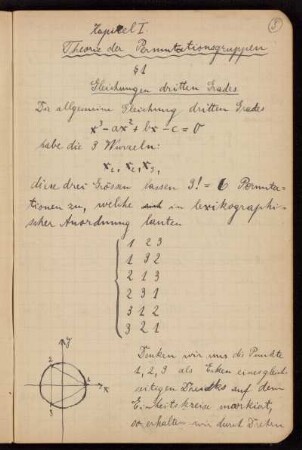 Kapitel I.
Theorie der Permutationsgruppen
§1
Gleichungen dritten Grades
Die allgemeine Gleichung dritten Grades
x³-ax²+bx-c=0
habe die 3 Wurzeln:
x₁, x₂, x₃,
diese drei Grössen lassen 3! = 6 Permuta-
tionen zu, welche sich in lexikographi-
scher Anordnung lauten
1 2 3
1 3 2
2 1 3
2 3 1
3 1 2
3 2 1
y
2
1
x
3
Denken wir uns die Punkte
1, 2, 3 als Ecken eines gleich-
seitigen Dreiecks auf dem
Einheitskreise markiert,
so erhalten wir durch Drehen